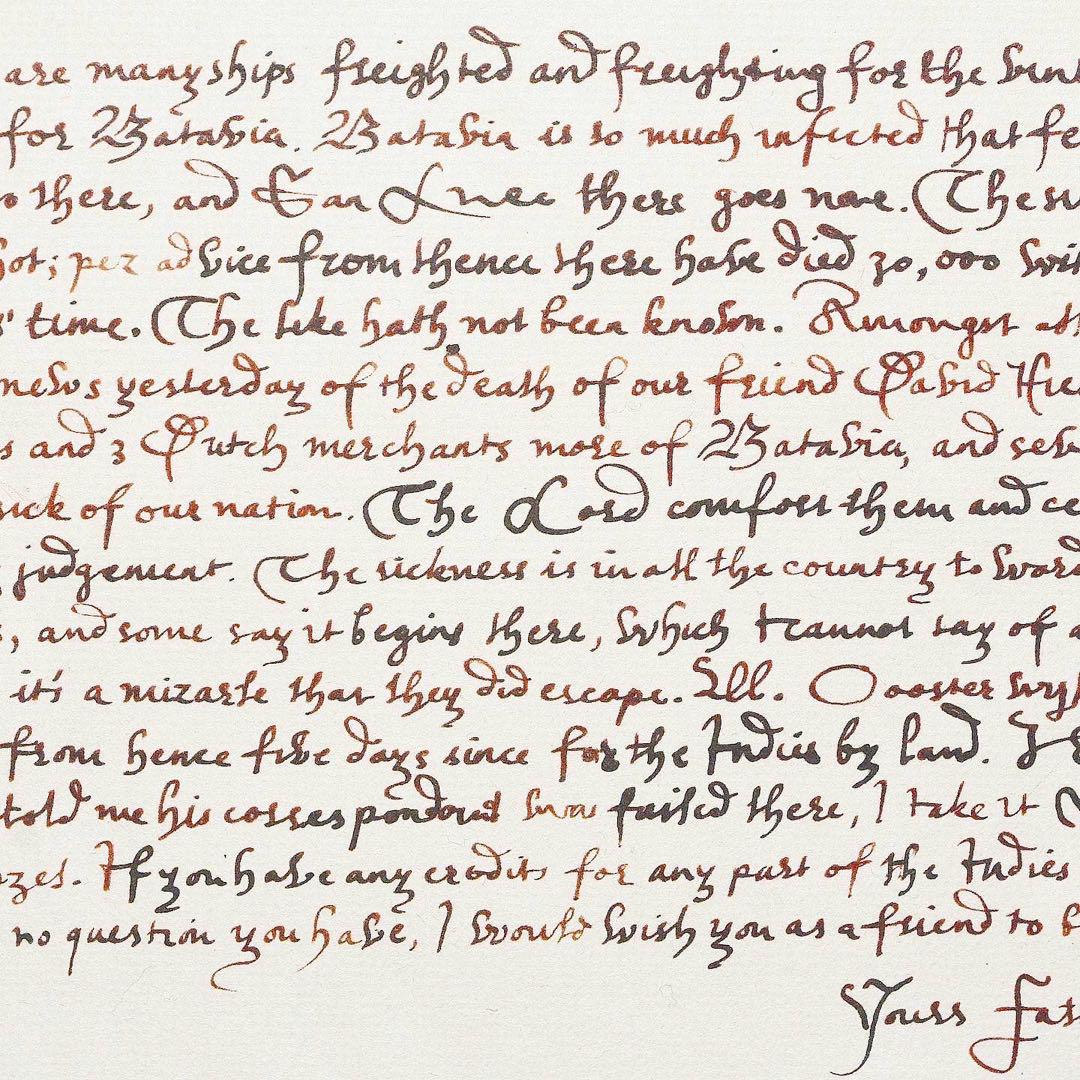 are many ships freighted and freighting for the vint
for Batavia. Batavia is so much infected that fe
o there, and San Lucc there goes none. The su
hot; per advice from thence there have died 30,000 wit
s' time. The like hath not been known. Amongst oth
news yesterday of the death of our friend David Hie
s and 3 Dutch merchants more of Batavia, and seve
sick of our nation. The Lord comfort them and ce
judgement. The sickness is in all the country toward
s, and some say it begins there, which I cannot say of a
it's a mizarle that they did escape. Ooster
from hence five days since for the Indies by land. I
told me his correspondend was failed there, I take it
If you have any credits for any part of the Indies
no question you have, I would wish you as a friend to b
Yours Fat